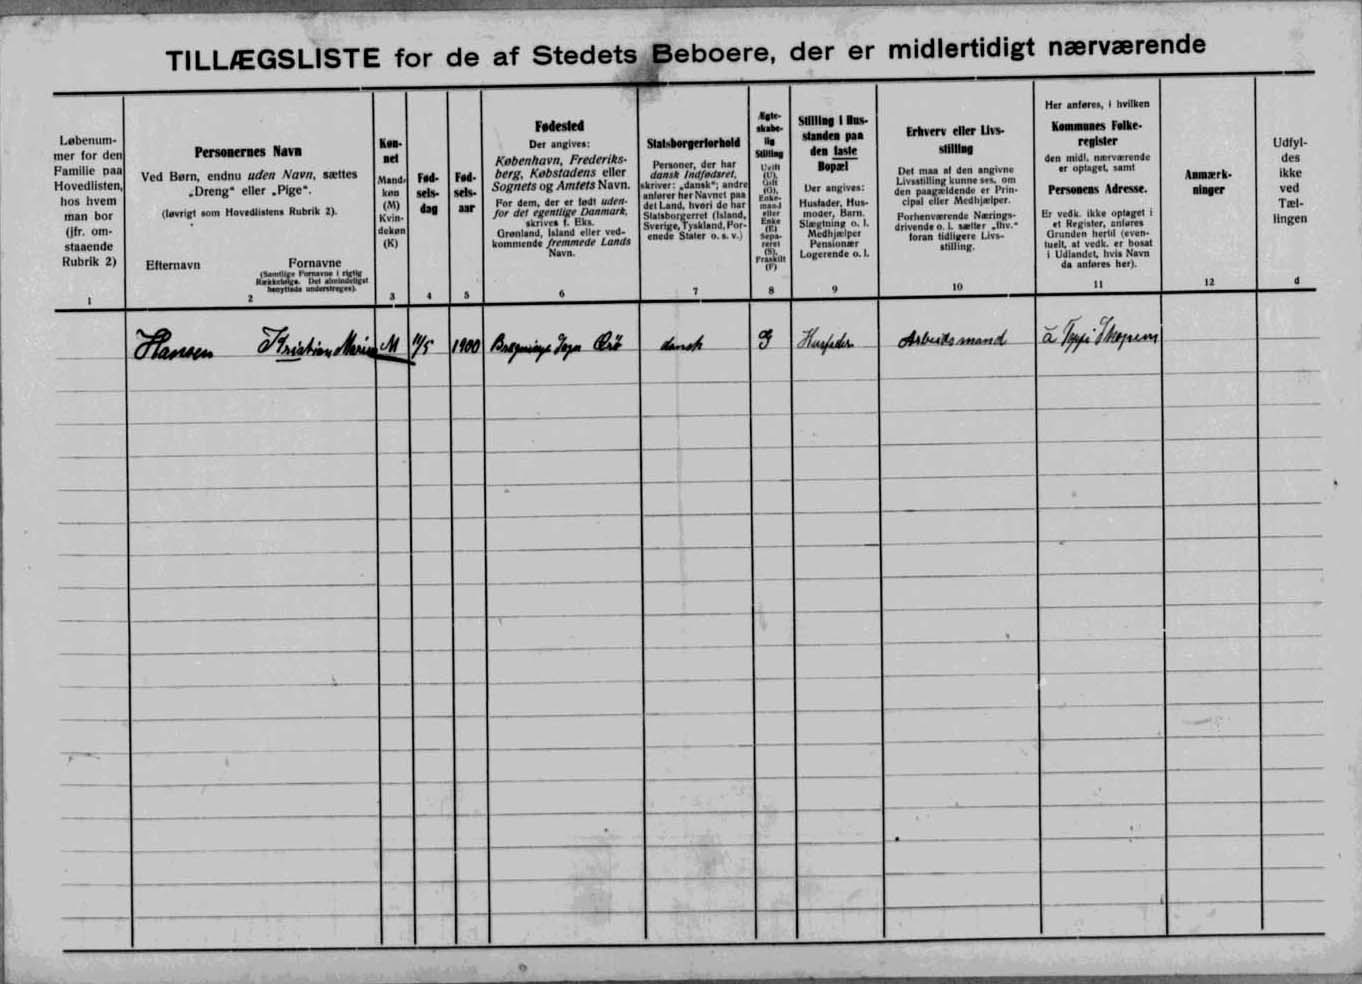 TILLÆGSLISTE for de af Stedets Beboere, der er midlertidigt nærværende
Løbenum-
mer for den
Familie paa
Hovedlisten,
hos hvem
man bor
(jfr. om-
staaende
Rubrik 2)
1
Personernes Navn
Ved Børn, endnu uden Navn, sættes
„Dreng" eller „Pige".
(Iøvrigt som Hovedlistens Rubrik 2).
Efternavn
Fornavne
(Samtlige Fornavne i rigtig
Rækkefølge. Det almindeligst
benyttede understreges).
2
Køn-
net
Mand-
køn
(M)
Kvin-
dekøn
(K)
3
Fød-
sels-
dag
4
Fød-
sels-
aar
5
Fødested
Der angives:
København, Frederiks-
berg, Købstadens eller
Sognets og Amtets Navn.
For dem, der er født uden-
for det egentlige Danmark,
skrives f. Eks.
Grønland, Island eller ved-
kommende fremmede Lands
Navn.
6
Statsborgerforhold
Personer, der har
dansk Indfødsret,
skriver: „dansk"; andre
anfører her Navnet paa
det Land, hvori de har
Statsborgerret (Island,
Sverige, Tyskland, For-
enede Stater o. s. v.)
7
Ægte-
skabe-
lig
Stilling
Ugift
(U),
Gift
(G),
Enke-
mand
eller
Enke
(E)
Sepa-
reret
(S),
Fraskilt
(F)
8
Stilling i Hus-
standen paa
den faste
Bopæl
Der angives:
Husfader, Hus-
moder, Barn,
Slægtning o. l.
Medhjælper
Pensionær
Logerende o. l.
9
Erhverv eller Livs-
stilling
Det maa af den angivne
Livsstilling kunne ses, om
den paagældende er Prin-
cipal eller Medhjælper.
Forhenværende Nærings-
drivende o. l. sætter „fhv."
foran tidligere Livs-
stilling.
10
Her anføres, i hvilken
Kommunes Folke-
register
den midl. nærværende
er optaget, samt
Personens Adresse.
Er vedk. ikke optaget i
et Register, anføres
Grunden hertil (even-
tuelt, at vedk. er bosat
i Udlandet, hvis Navn
da anføres her).
11
Anmærk-
ninger
12
Udfyl-
des
ikke
ved
Tæl-
lingen
d
Hansen Kristian Marius M 11/5 1900 Bregninge Sogn Ærö dansk G Husfader Arbeidsmand